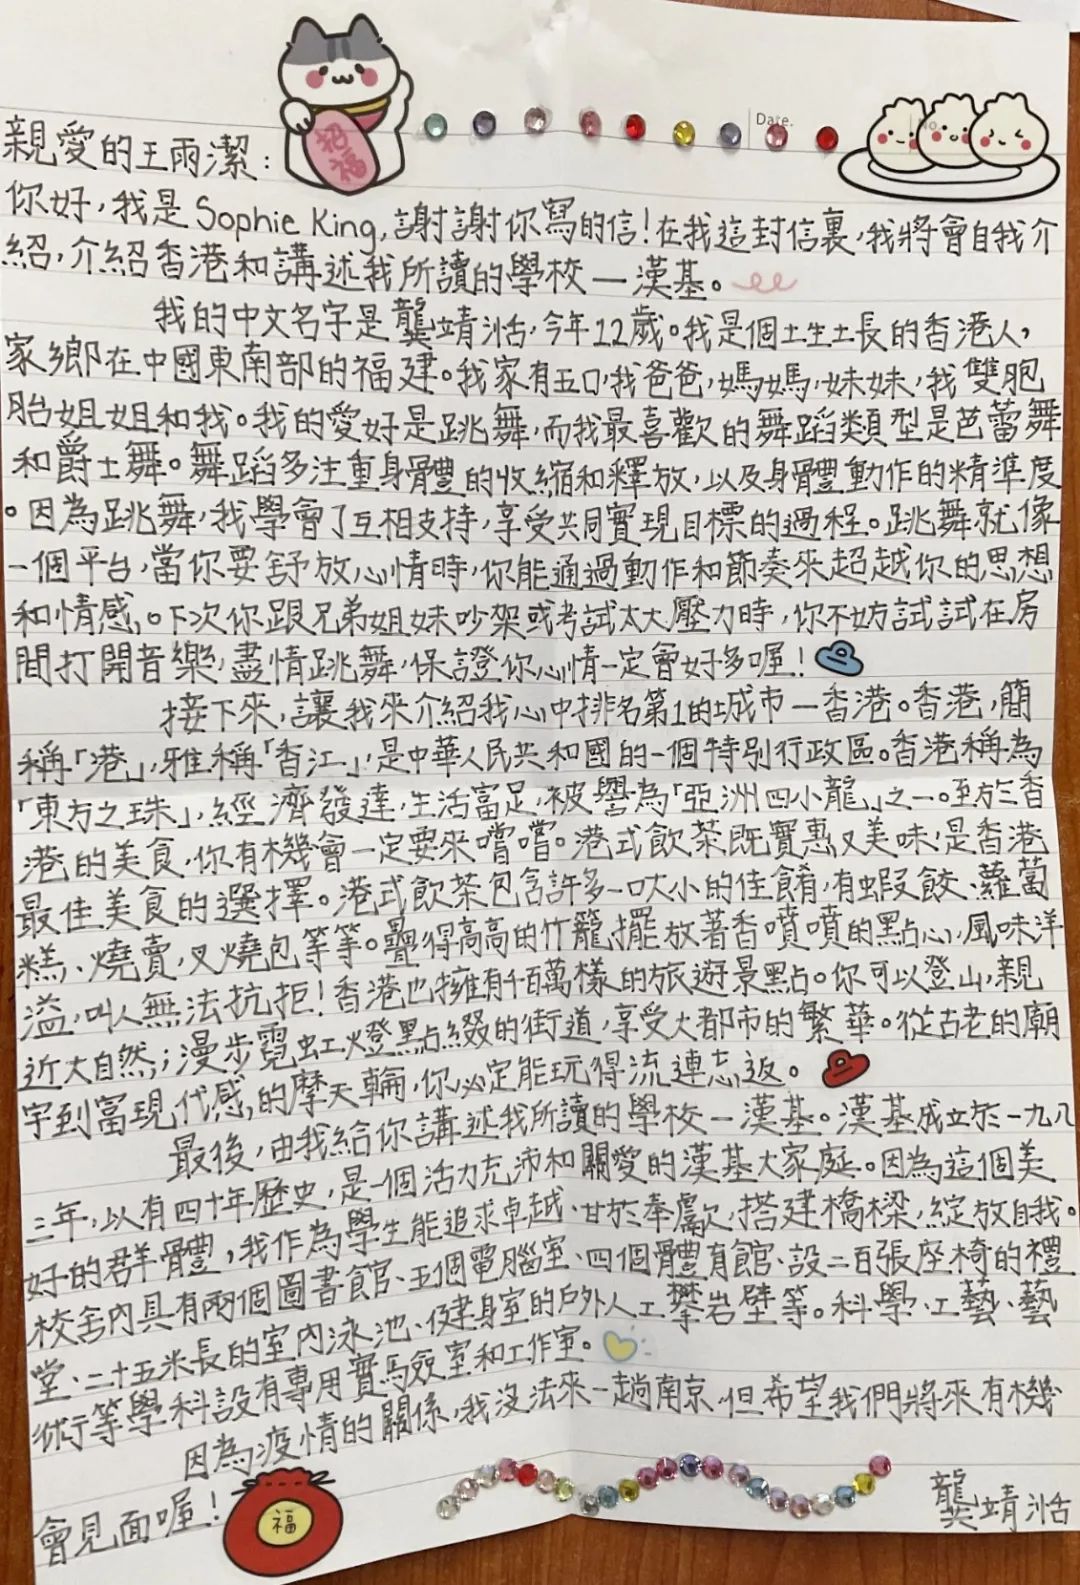 招福
Date.
No.
親愛的王雨潔：
你好，我是Sophie King，謝謝你寫的信！在我這封信裏，我將會自我介
紹，介紹香港和講述我所讀的學校—漢基。
我的中文名字是龔靖湉，今年12歲。我是個土生土長的香港人，
家鄉在中國東南部的福建。我家有五口，我爸爸，媽媽，妹妹，我雙胞
胎姐姐和我。我的愛好是跳舞，而我最喜歡的舞蹈類型是芭蕾舞
和爵士舞。舞蹈多注重身體的收縮和釋放，以及身體動作的精準度
。因為跳舞，我學會了互相支持，享受共同實現目標的過程。跳舞就像
一個平台，當你要舒放心情時，你能通過動作和節奏來超越你的思想
和情感。下次你跟兄弟姐妹吵架或考試太大壓力時，你不妨試試在房
間打開音樂，盡情跳舞，保證你心情一定會好多喔！
接下來，讓我來介紹我心中排名第1的城市—香港。香港，簡
稱「港」，雅稱「香江」，是中華人民共和國的一個特別行政區。香港稱為
「東方之珠」，經濟發達，生活富足，被譽為「亞洲四小龍」之一。至於香
港的美食，你有機會一定要來嚐嚐。港式飲茶既實惠又美味，是香港
最佳美食的選擇。港式飲茶包含許多一口大小的佳餚，有蝦餃、蘿蔔
糕、燒賣，叉燒包等等。疊得高高的竹籠，擺放著香噴噴的點心，風味洋
溢，叫人無法抗拒！香港也擁有千百萬樣的旅遊景點。你可以登山，親
近大自然；漫步霓虹燈點綴的街道，享受大都市的繁華。從古老的廟
宇到富現代感的摩天輪，你必定能玩得流連忘返。
最後，由我給你講述我所讀的學校—漢基。漢基成立於一九八
三年，以有四十年歷史，是一個活力充沛和關愛的漢基大家庭。因為這個美
好的群體，我作為學生能追求卓越、甘於奉獻，搭建橋樑，綻放自我。
校舍內具有兩個圖書館、五個電腦室、四個體育館、設二百張座椅的禮
堂、二十五米長的室內泳池、健身室的戶外人工攀岩壁等。科學、工藝、藝
術等學科設有專用實驗室和工作室。
因為疫情的關係，我沒法來一趟南京，但希望我們將來有機
會見面喔！
福
龔靖湉